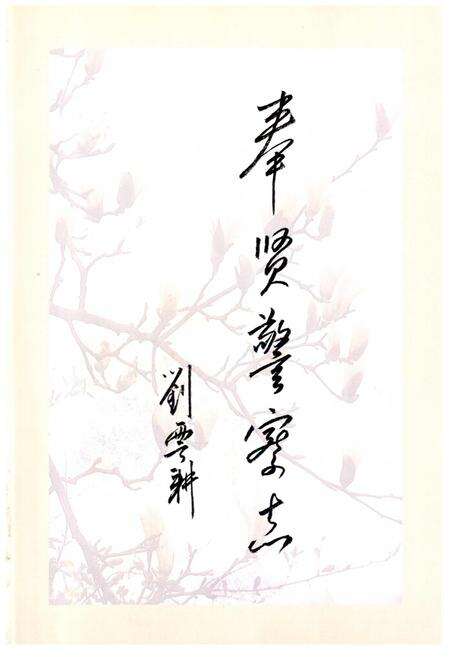 奉贤警察志
劉雲耕